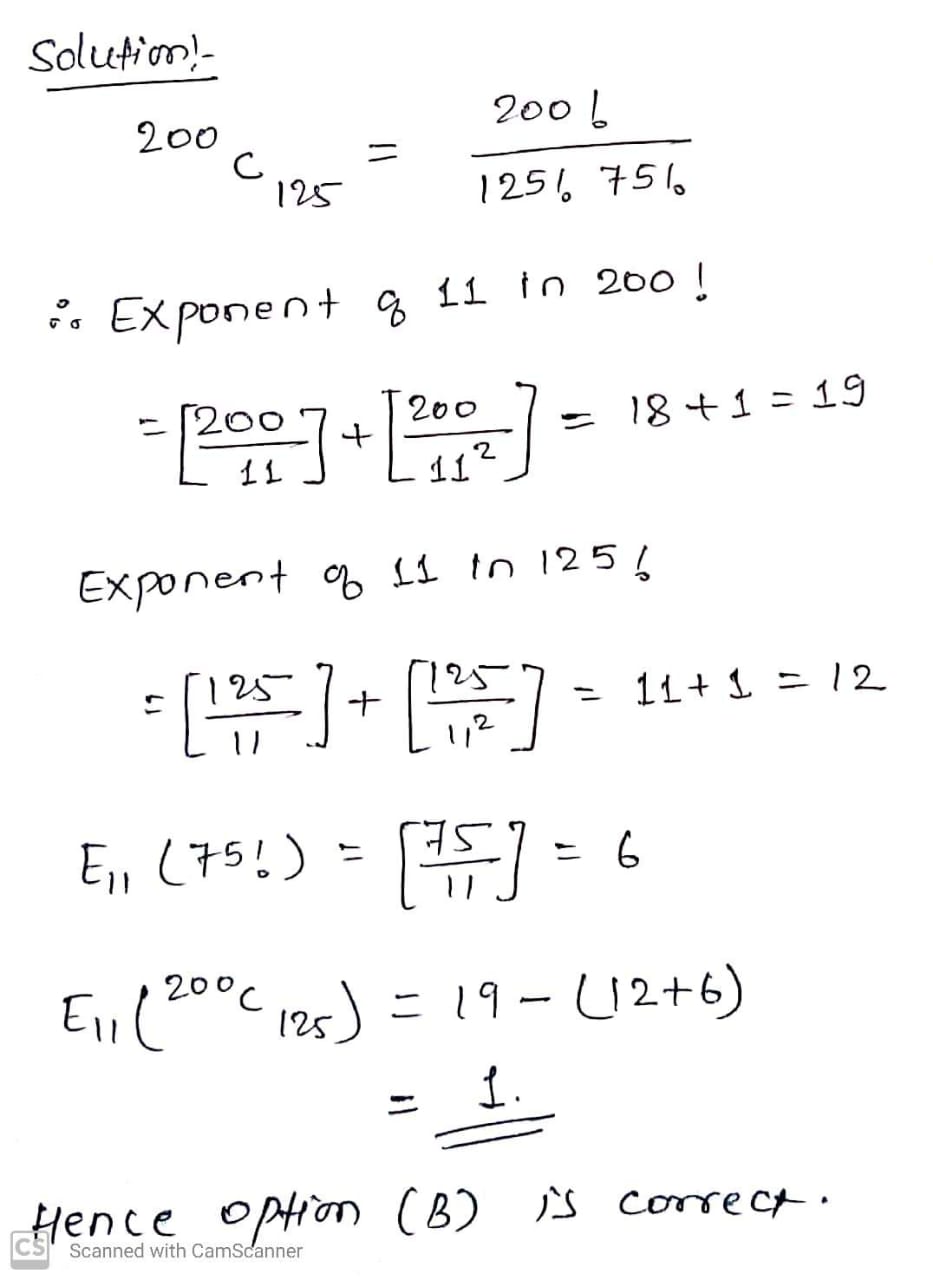 Solution:-
200 C 125 = 200! / 125! 75!
∴ Exponent of 11 in 200!
= [200/11] + [200/11²] = 18 + 1 = 19
Exponent of 11 in 125!
= [125/11] + [125/11²] = 11 + 1 = 12
E₁₁ (75!) = [75/11] = 6
E₁₁ (²⁰⁰C₁₂₅) = 19 - (12+6)
= 1.
Hence option (B) is correct.
CS Scanned with CamScanner